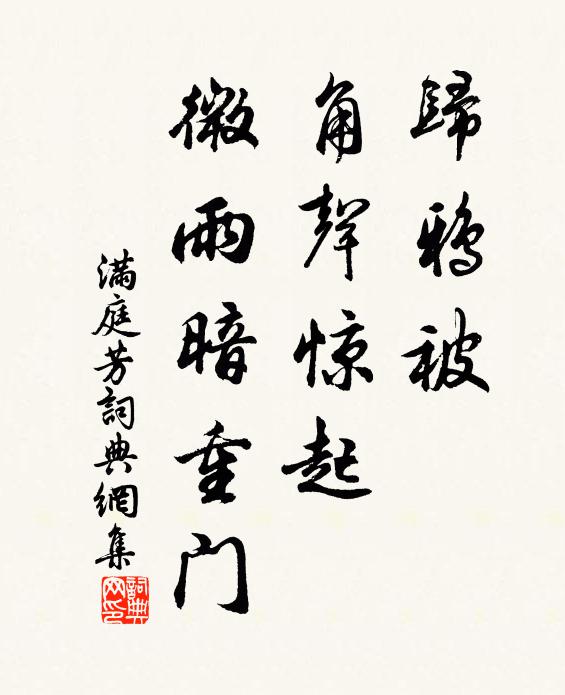 歸鴉被
角聲惊起
微雨暗重門
滿庭芳詞典網集
詞典网印